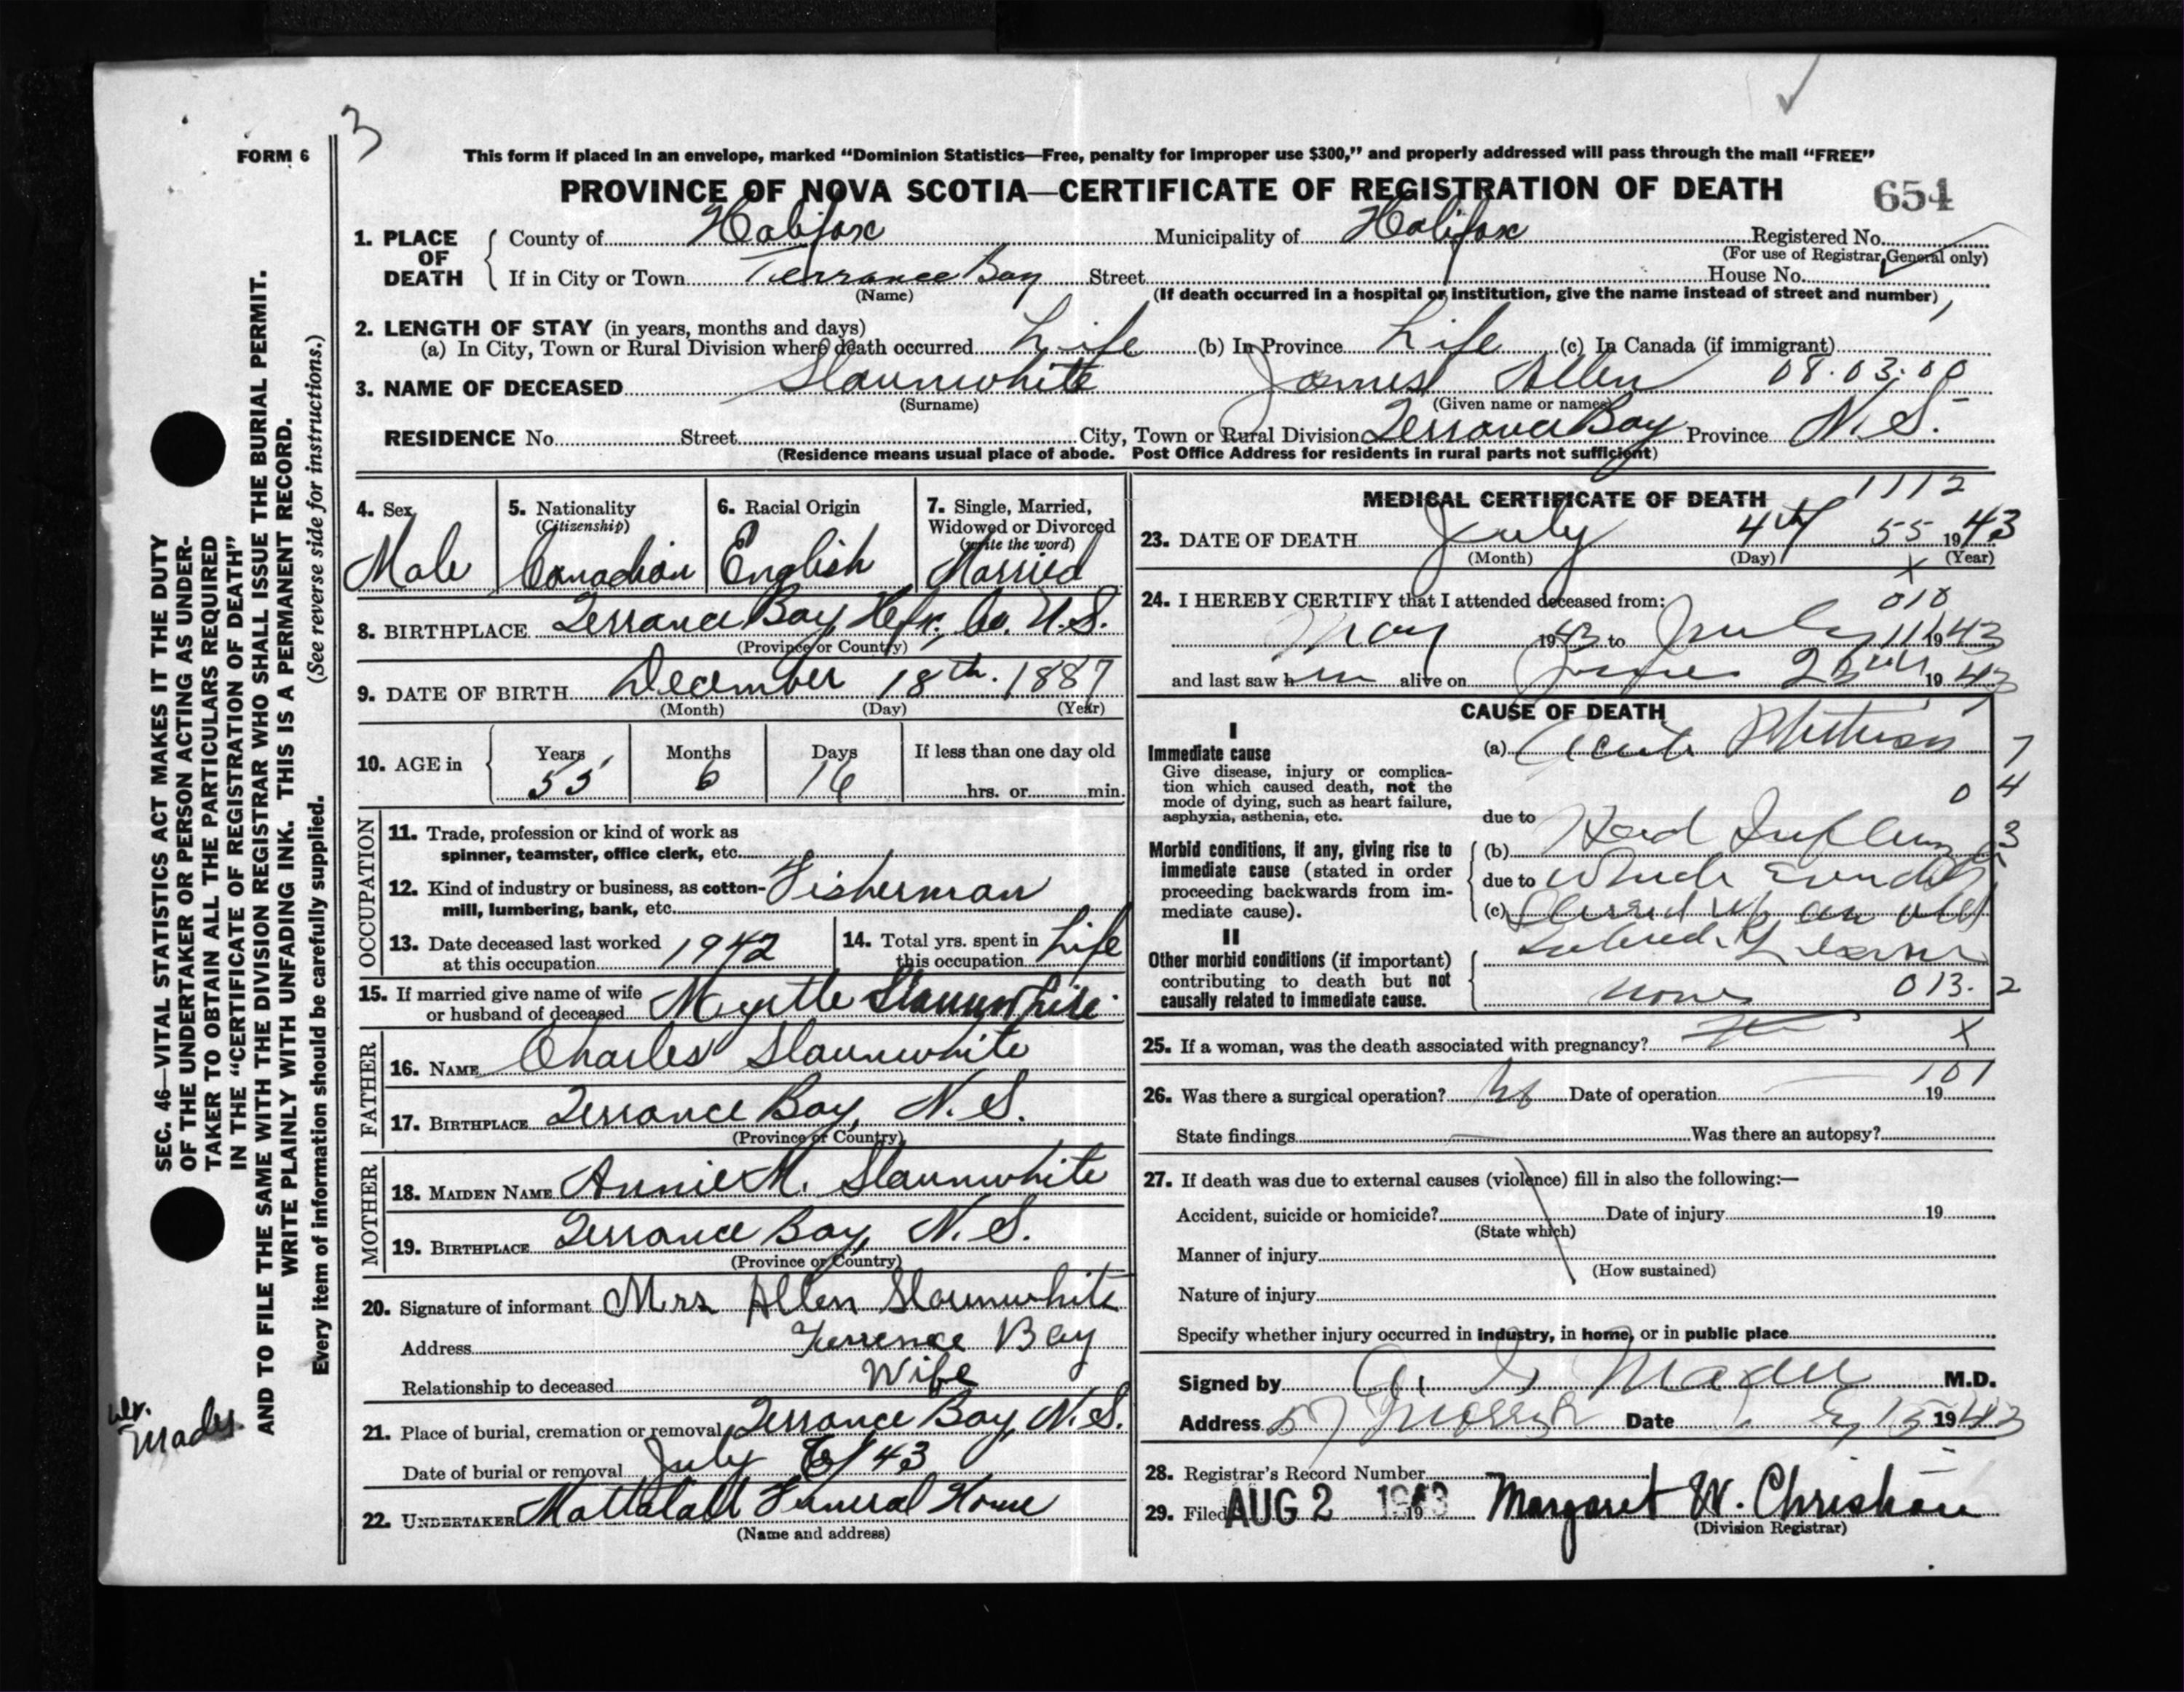 3
FORM 6
This form if placed in an envelope, marked "Dominion Statistics—Free, penalty for improper use $300," and properly addressed will pass through the mail "FREE"
PROVINCE OF NOVA SCOTIA—CERTIFICATE OF REGISTRATION OF DEATH 654
1. PLACE OF DEATH County of Halifax Municipality of Halifax Registered No.
(For use of Registrar General only)
If in City or Town Terrance Bay Street House No.
(Name) (If death occurred in a hospital or institution, give the name instead of street and number)
2. LENGTH OF STAY (in years, months and days)
(a) In City, Town or Rural Division where death occurred Life (b) In Province Life (c) In Canada (if immigrant)
3. NAME OF DECEASED Slaunwhite James Allen 08.03.00
(Surname) (Given name or names)
RESIDENCE No. Street City, Town or Rural Division Terrance Bay Province N.S.
(Residence means usual place of abode. Post Office Address for residents in rural parts not sufficient)
4. Sex 5. Nationality (Citizenship) 6. Racial Origin 7. Single, Married, Widowed or Divorced (write the word)
Male Canadian English Married
8. BIRTHPLACE Terrance Bay, Hfx. Co. N.S.
(Province or Country)
9. DATE OF BIRTH December 18th. 1887
(Month) (Day) (Year)
10. AGE in Years Months Days If less than one day old
55 6 16 hrs. or min.
OCCUPATION
11. Trade, profession or kind of work as
spinner, teamster, office clerk, etc.
12. Kind of industry or business, as cotton- Fisherman
mill, lumbering, bank, etc.
13. Date deceased last worked at this occupation 1942 14. Total yrs. spent in this occupation Life
15. If married give name of wife or husband of deceased Myrtle Slaunwhite
FATHER
16. NAME Charles Slaunwhite
17. BIRTHPLACE Terrance Bay, N.S.
(Province or Country)
MOTHER
18. MAIDEN NAME Annie M. Slaunwhite
19. BIRTHPLACE Terrance Bay, N.S.
(Province or Country)
20. Signature of informant Mrs Allen Slaunwhite
Address Terrence Bay
Relationship to deceased Wife
21. Place of burial, cremation or removal Terrance Bay, N.S.
Date of burial or removal July 6/43
22. UNDERTAKER Mattatall Funeral Home
(Name and address)
MEDICAL CERTIFICATE OF DEATH 1112
23. DATE OF DEATH July 4th 55 1943
(Month) (Day) (Year)
x
24. I HEREBY CERTIFY that I attended deceased from: 010
May 1943 to July 1943
and last saw h im alive on 1943
CAUSE OF DEATH
I
Immediate cause
Give disease, injury or complication which caused death, not the mode of dying, such as heart failure, asphyxia, asthenia, etc.
(a) Acute Phthisis 7
0 4
due to Had
Morbid conditions, if any, giving rise to immediate cause (stated in order proceeding backwards from immediate cause).
(b) 3
due to Which
(c) up an old
II
Other morbid conditions (if important) contributing to death but not causally related to immediate cause.
none 013. 2
25. If a woman, was the death associated with pregnancy? X
101
26. Was there a surgical operation? No Date of operation 19
State findings Was there an autopsy?
27. If death was due to external causes (violence) fill in also the following:—
Accident, suicide or homicide? Date of injury 19
(State which)
Manner of injury
(How sustained)
Nature of injury
Specify whether injury occurred in industry, in home, or in public place
Signed by Mader M.D.
Address 57 Morris Date 15 1943
28. Registrar's Record Number
29. Filed AUG 2 1943 19 Margaret W. Christian
(Division Registrar)
SEC. 46—VITAL STATISTICS ACT MAKES IT THE DUTY
OF THE UNDERTAKER OR PERSON ACTING AS UNDER-
TAKER TO OBTAIN ALL THE PARTICULARS REQUIRED
IN THE "CERTIFICATE OF REGISTRATION OF DEATH"
AND TO FILE THE SAME WITH THE DIVISION REGISTRAR WHO SHALL ISSUE THE BURIAL PERMIT.
WRITE PLAINLY WITH UNFADING INK. THIS IS A PERMANENT RECORD.
Every item of information should be carefully supplied. (See reverse side for instructions.)
Mader